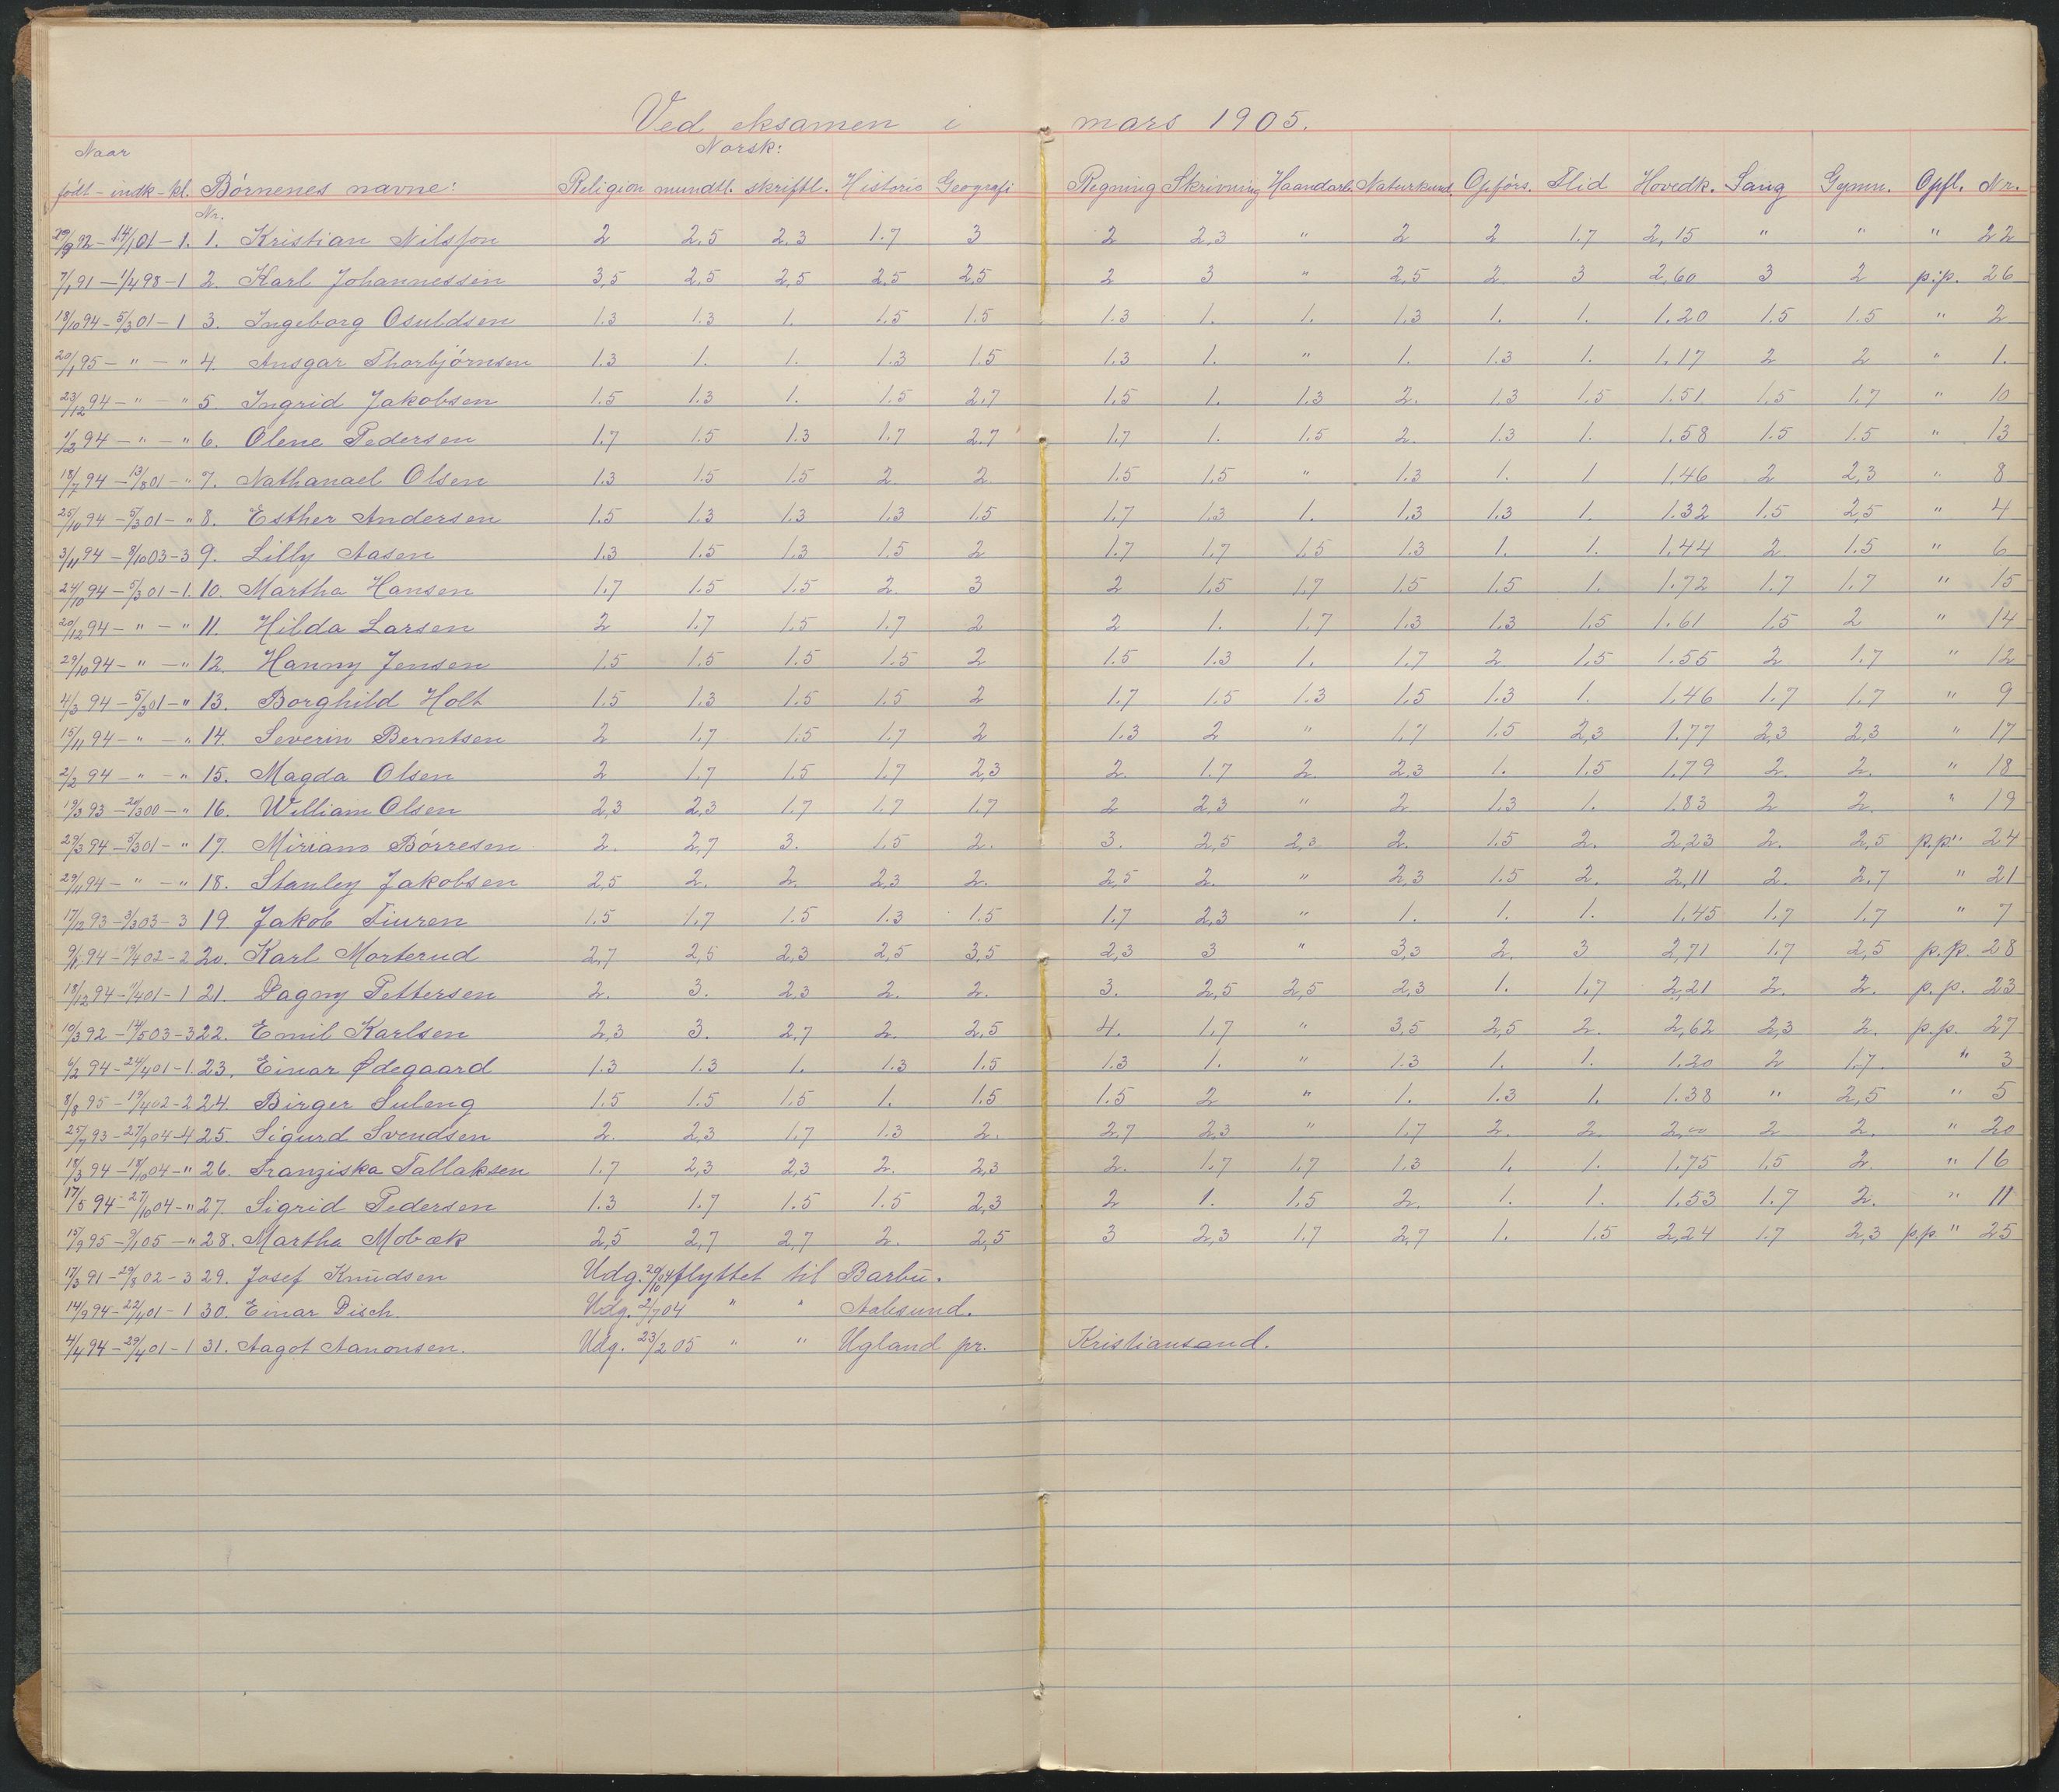 Ved eksamen i mars 1905.
Naar Norsk:
født - indk - kl. Børnenes navne: Religion mundtl. skriftl. Historie Geografi Regning Skrivning Haandarb. Naturkund. Opførs. Flid Hovedk. Sang Gymn. Opfl. Nr.
Nr.
29/9 92 - 14/1 01 - 1. 1. Kristian Nilsson 2 2,5 2,3 1.7 3 2 2,3 " 2 2 1.7 2,15 " " " 22
7/1 91 - 1/4 98 - 1 2. Karl Johannessen 3,5 2,5 2,5 2,5 2,5 2 3 " 2,5 2 3 2,60 3 2 p.p. 26
18/10 94 - 5/3 01 - 1 3. Ingeborg Osuldsen 1.3 1.3 1. 1.5 1.5 1.3 1. 1. 1.3 1. 1. 1.20 1.5 1.5 " 2
20/1 95 - " - " 4. Ansgar Thorbjørnsen 1.3 1. 1. 1.3 1.5 1.3 1. " 1. 1.3 1. 1.17 2 2 " 1.
23/12 94 - " - " 5. Ingrid Jakobsen 1.5 1.3 1. 1.5 2,7 1.5 1. 1.3 2. 1.3 1.5 1.51 1.5 1.7 " 10
1/2 94 - " - " 6. Olene Pedersen 1.7 1.5 1.3 1.7 2.7 1.7 1. 1.5 2. 1.3 1. 1.58 1.5 1.5 " 13
18/7 94 - 13/8 01 - " 7. Nathanael Olsen 1.3 1.5 1.5 2 2 1.5 1.5 " 1.3 1. 1 1.46 2 2,3 " 8
25/10 94 - 5/3 01 - " 8. Esther Andersen 1.5 1.3 1.3 1.3 1.5 1.7 1.3 1. 1.3 1.3 1. 1.32 1.5 2,5 " 4
3/11 94 - 8/10 03 - 3 9. Lilly Aasen 1.3 1.5 1.3 1.5 2 1.7 1.7 1,5 1.3 1. 1. 1.44 2 1.5 " 6
24/10 94 - 5/3 01 - 1. 10. Martha Hansen 1.7 1.5 1.5 2. 3 2 1.5 1.7 1.5 1.5 1. 1.72 1.7 1.7 " 15
20/12 94 - " - " 11. Hilda Larsen 2 1.7 1.5 1.7 2 2 1. 1.7 1.3 1.3 1.5 1.61 1.5 2 " 14
29/10 94 - " - " 12. Hanny Jensen 1.5 1.5 1.5 1.5 2 1.5 1.3 1. 1.7 2 1.5 1.55 2 1.7 " 12
4/3 94 - 5/3 01 - " 13. Borghild Holt 1.5 1.3 1.5 1.5 2 1.7 1.5 1.3 1.5 1.3 1. 1.46 1.7 1.7 " 9
15/11 94 - " - " 14. Severin Berntsen 2 1.7 1.5 1.7 2 1.3 2 " 1.7 1.5 2,3 1.77 2,3 2,3 " 17
2/2 94 - " - " 15. Magda Olsen 2 1.7 1.5 1.7 2,3 2. 1.7 2. 2.3 1. 1.5 1.79 2. 2. " 18
19/3 93 - 20/3 00 - " 16. William Olsen 2,3 2,3 1.7 1.7 1.7 2 2,3 " 2 1.3 1. 1.83 2 2. " 19
29/3 94 - 5/3 01 - " 17. Miriam Børresen 2. 2,7 3. 1.5 2. 3. 2,5 2,3 2. 1.5 2. 2,23 2. 2,5 p.p." 24
29/11 94 - " - " 18. Stanley Jakobsen 2,5 2. 2. 2,3 2. 2,5 2. " 2,3 1.5 2. 2,11 2. 2.7 " 21
17/12 93 - 3/3 03 - 3 19. Jakob Tiuren 1.5 1.7 1.5 1.3 1.5 1.7 2,3 " 1. 1. 1. 1.45 1.7 1.7 " 7
9/1 94 - 19/4 02 - 2 20. Karl Morterud 2,7 2,5 2,3 2,5 3,5 2,3 3 " 3,3 2. 3 2,71 1.7 2,5 p.p. 28
18/12 94 - 9/4 01 - 1 21. Dagny Pettersen 2. 3. 2,3 2. 2. 3. 2,5 2,5 2,3 1. 1,7 2,21 2. 2. p.p. 23
19/3 92 - 14/5 03 - 3 22. Emil Karlsen 2,3 3. 2,7 2. 2,5 4. 1.7 " 3,5 2,5 2. 2,62 2,3 2. p.p. 27
6/2 94 - 24/4 01 - 1. 23. Einar Ødegaard 1.3 1.3 1. 1.3 1.5 1.3 1. " 1.3 1. 1. 1.20 2 1.7. " 3
8/8 95 - 19/4 02 - 2 24. Birger Suleng 1.5 1.5 1.5 1. 1.5 1.5 2 " 1. 1.3 1. 1.38 " 2,5 " 5
25/7 93 - 27/9 04 - 4 25. Sigurd Svendsen 2. 2,3 1.7 1.3 2. 2.7 2.3 " 1.7 2. 2. 2,00 2 2. " 20
18/3 94 - 18/10 04 - " 26. Franziska Tallaksen 1.7 2,3 2,3 2. 2,3 2. 1.7 1.7 1.3 1. 1. 1.75 1.5 2. " 16
17/5 94 - 27/10 04 - " 27. Sigrid Pedersen 1.3 1.7 1.5 1.5 2,3 2 1. 1.5 2. 1. 1. 1.53 1.7 2. " 11
15/9 95 - 9/1 05 - " 28. Martha Mobæk 2,5 2,7 2,7 2. 2,5 3 2,3 1.7 2,7 1. 1.5 2,24 1.7 2,3 p.p " 25
17/3 91 - 29/8 02 - 3 29. Josef Knudsen Udg. 20/10 04 flyttet til Barbu.
14/9 94 - 22/4 01 - 1 30. Einar Disch. Udg. 2/7 04 " " Aalesund.
4/4 94 - 29/4 01 - 1 31. Aagot Aanonsen. Udg. 23/2 05 " " Ugland pr. Kristiansand.